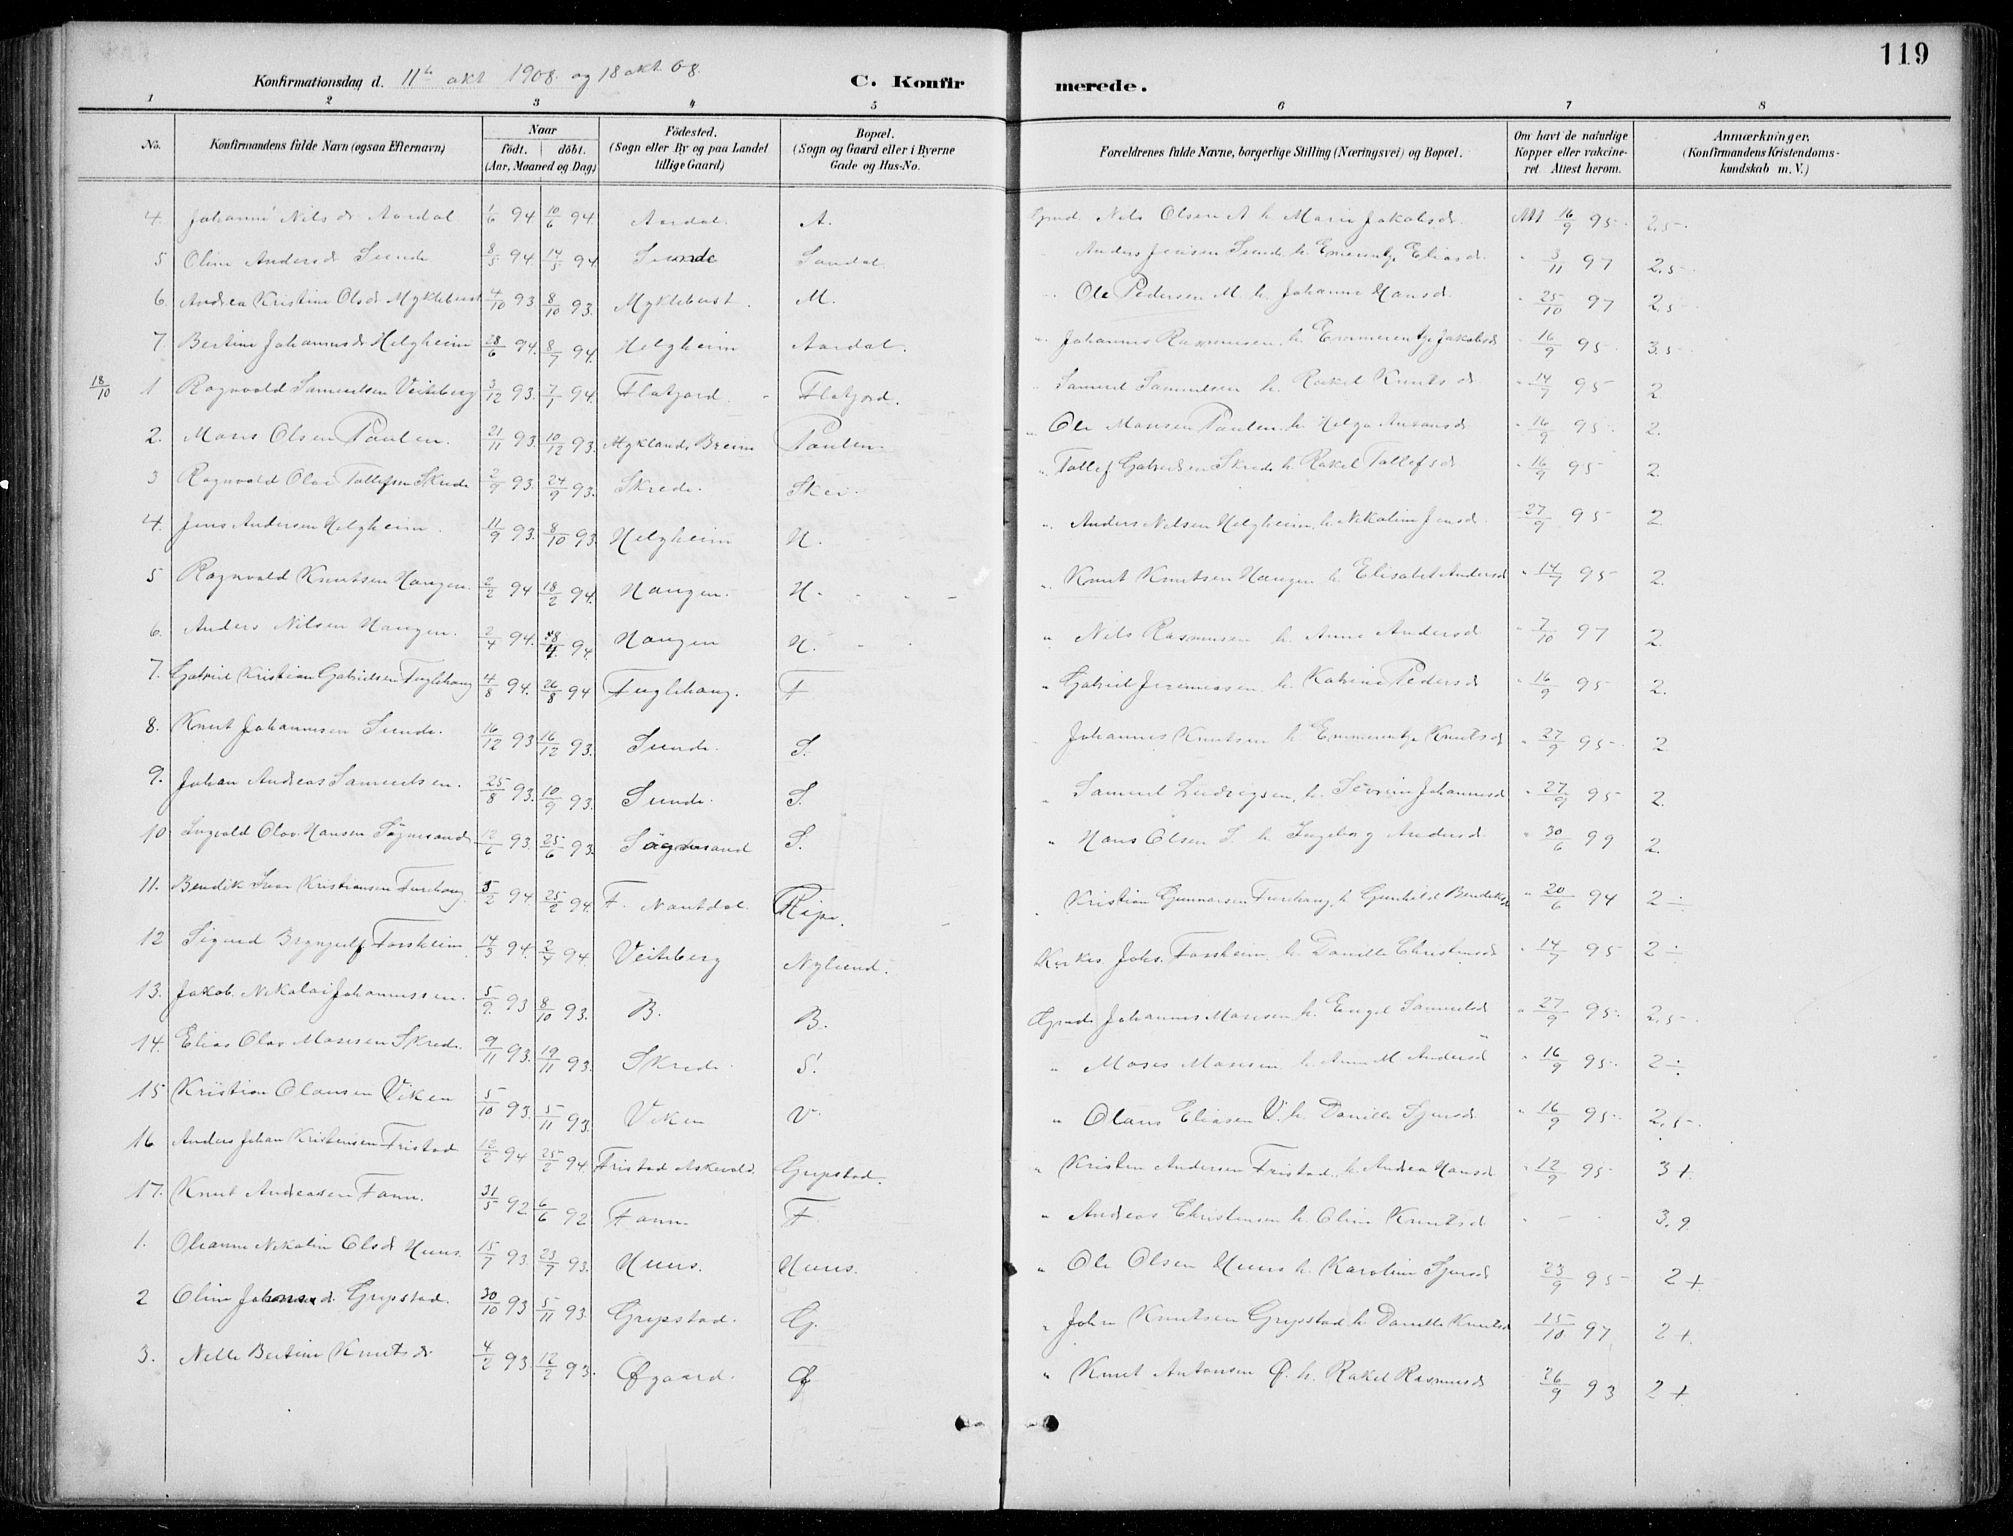 119
Konfirmationsdag d. 11te okt 1908. og 18 okt. 08.
C. Konfirmerede.
1 2 3 4 5 6 7 8
No. Konfirmandens fulde Navn (ogsaa Efternavn) Naar født. døbt. (Aar, Maaned og Dag) Fødested. (Sogn eller By og paa Landet tillige Gaard) Bopæl. (Sogn og Gaard eller i Byerne Gade og Hus-No. Forældrenes fulde Navne, borgerlige Stilling (Næringsvei) og Bopæl. Om havt de naturlige Kopper eller vakcineret. Attest herom. Anmærkninger. (Konfirmandens Kristendomskundskab m. V.)
4. Johanne Nilsdr Aardal 1/6 94 10/6 94. Aardal. A. Grmd. Nils Olsen A h. Marie Jakobsdr. 16/9 95. 2.5
5 Oline Andersdr Sunde 8/5 94 14/5 94 Sunde Sandal Anders Jensen Sunde h. Emerentze Eliasdr. " 3/11 97 2.5
6. Andrea Kristine Olsdr Myklebust 4/10 93 8/10 93. Myklebust. M. Ole Pedersen M. h. Johanne Hansdr. " 25/10 97 2.5
7. Bertine Johannesdr Helgheim 28/6 94. 8/7 94. Helgheim Aardal. " Johannes Rasmussen h. Emmerentze Jakobsdr " 16/9 95. 3.5
18/10 1 Ragnvald Samuelsen Veiteberg 3/12 93. 7/1 94. Flatjord. Flatjord. " Samuel Samuelsen h. Rakel Knutsdr " 14/7 95 2
2. Mons Olsen Paulen. 21/11 93. 10/12 93. Myklands Breim Paulen. " Ole Monsen Paulen h. Helga Antonsdr " 16/9 95. 2.
3 Ragnvald Olai Tollefsen Skrede 2/9 93. 24/9 93. Skrede. Skei. " Tollef Gabrielsen Skrede h. Rakel Tollefsdr " 16/9 95 2.
4. Jens Andersen Helgheim. 11/9 93. 8/10 93. Helgheim H. " Anders Nilsen Helgheim h. Nikoline Jensdr. 27/9 95 2.
5 Ragnvald Knutsen Haugen. 2/2 94 18/2 94. Haugen. H. " Knut Knutsen Haugen h. Elisabet Andersdr " 14/7 95 2.
6. Anders Nilsen Haugen. 2/4 94. 8/4 94. Haugen H. " Nils Rasmussen h. Anne Andersdr " 7/10 97 2.
7. Gabriel Kristian Gabrielsen Fuglehaug 4/8 94. 26/8 94 Fuglehaug. F " Gabriel Jeremiassen h. Katrine Pedersdr " 16/9 95 2.
8. Knut Johannesen Sunde. 16/12 93 16/12 93. Sunde. S. Johannes Knutsen h. Emmerentze Knutsdr " 27/9 95. 2
9. Johan Andreas Samuelsen. 25/8 93. 10/9 93. Sunde. S. " Samuel Ludvigsen h. Sørine Johannesdr " 27/9 95 2.
10 Ingvald Olav Hansen Søgnesand 12/6 93. 25/6 93. Søgnesand S. " Hans Olsen S. h. Ingeborg Andersdr " 30/6 99 2.
11. Bendik Ivar Kristiansen Furehaug. 5/2 94. 25/2 94. F. Naustdal. Ripe. " Kristian Gunnarsen Furehaug h. Gunhild Bendiksdr " 20/6 94 2 ÷
12 Sigurd Brynjulf Forsheim 14/3 94. 2/4 94. Veiteberg Nylund. Kirkes. Johs. Forsheim h. Danille Christensdr " 14/7 95 2 ÷
13. Jakob Nikolai Johannessen. 5/9 93 8/10 93. B. B. Grmd. Johannes Monsen h. Engel Samuelsdr " 27/9 95. 2.5
14. Elias Olav Mosesen Skrede. 9/11 93. 19/11 93. Skrede. S. " Moses Mosesen h. Anne M. Andersd " 16/9 95. 2 ÷
15 Kristian Olausen Viken 5/10 93. 5/11 93. Viken V. " Olaus Eliasen V. h. Danille Sjursdr. " 16/9 95. 2.5.
16 Anders Johan Kristensen Fristad 12/2 94 25/2 94. Fristad Askevold. Grepstad. " Kristen Andersen Fristad h. Andrea Hansd " 12/9 95 3 +
17. Knut Andreasen Fonn. 31/5 92. 6/6 92 Fonn. F. " Andreas Christensen h. Oline Knutsd " - - 3.9
1. Olianne Nikoline Olsdr Huus. 15/7 93. 23/7 93. Huus. Huus. " Ole Olsen Huus h. Karoline Sjursdr 23/9 95 2 +.
2 Oline Johansdr. Grepstad. 30/10 93 5/11 93. Grepstad. G. " Johan Knutsen Grepstad h. Danille Knutsdr 15/10 97 2 +.
3. Nelle Bertine Knutsdr 4/2 93. 12/2 93. Øygaard. Ø " Knut Antonsen Ø. h. Rakel Rasmusdr 26/9 93 2 +